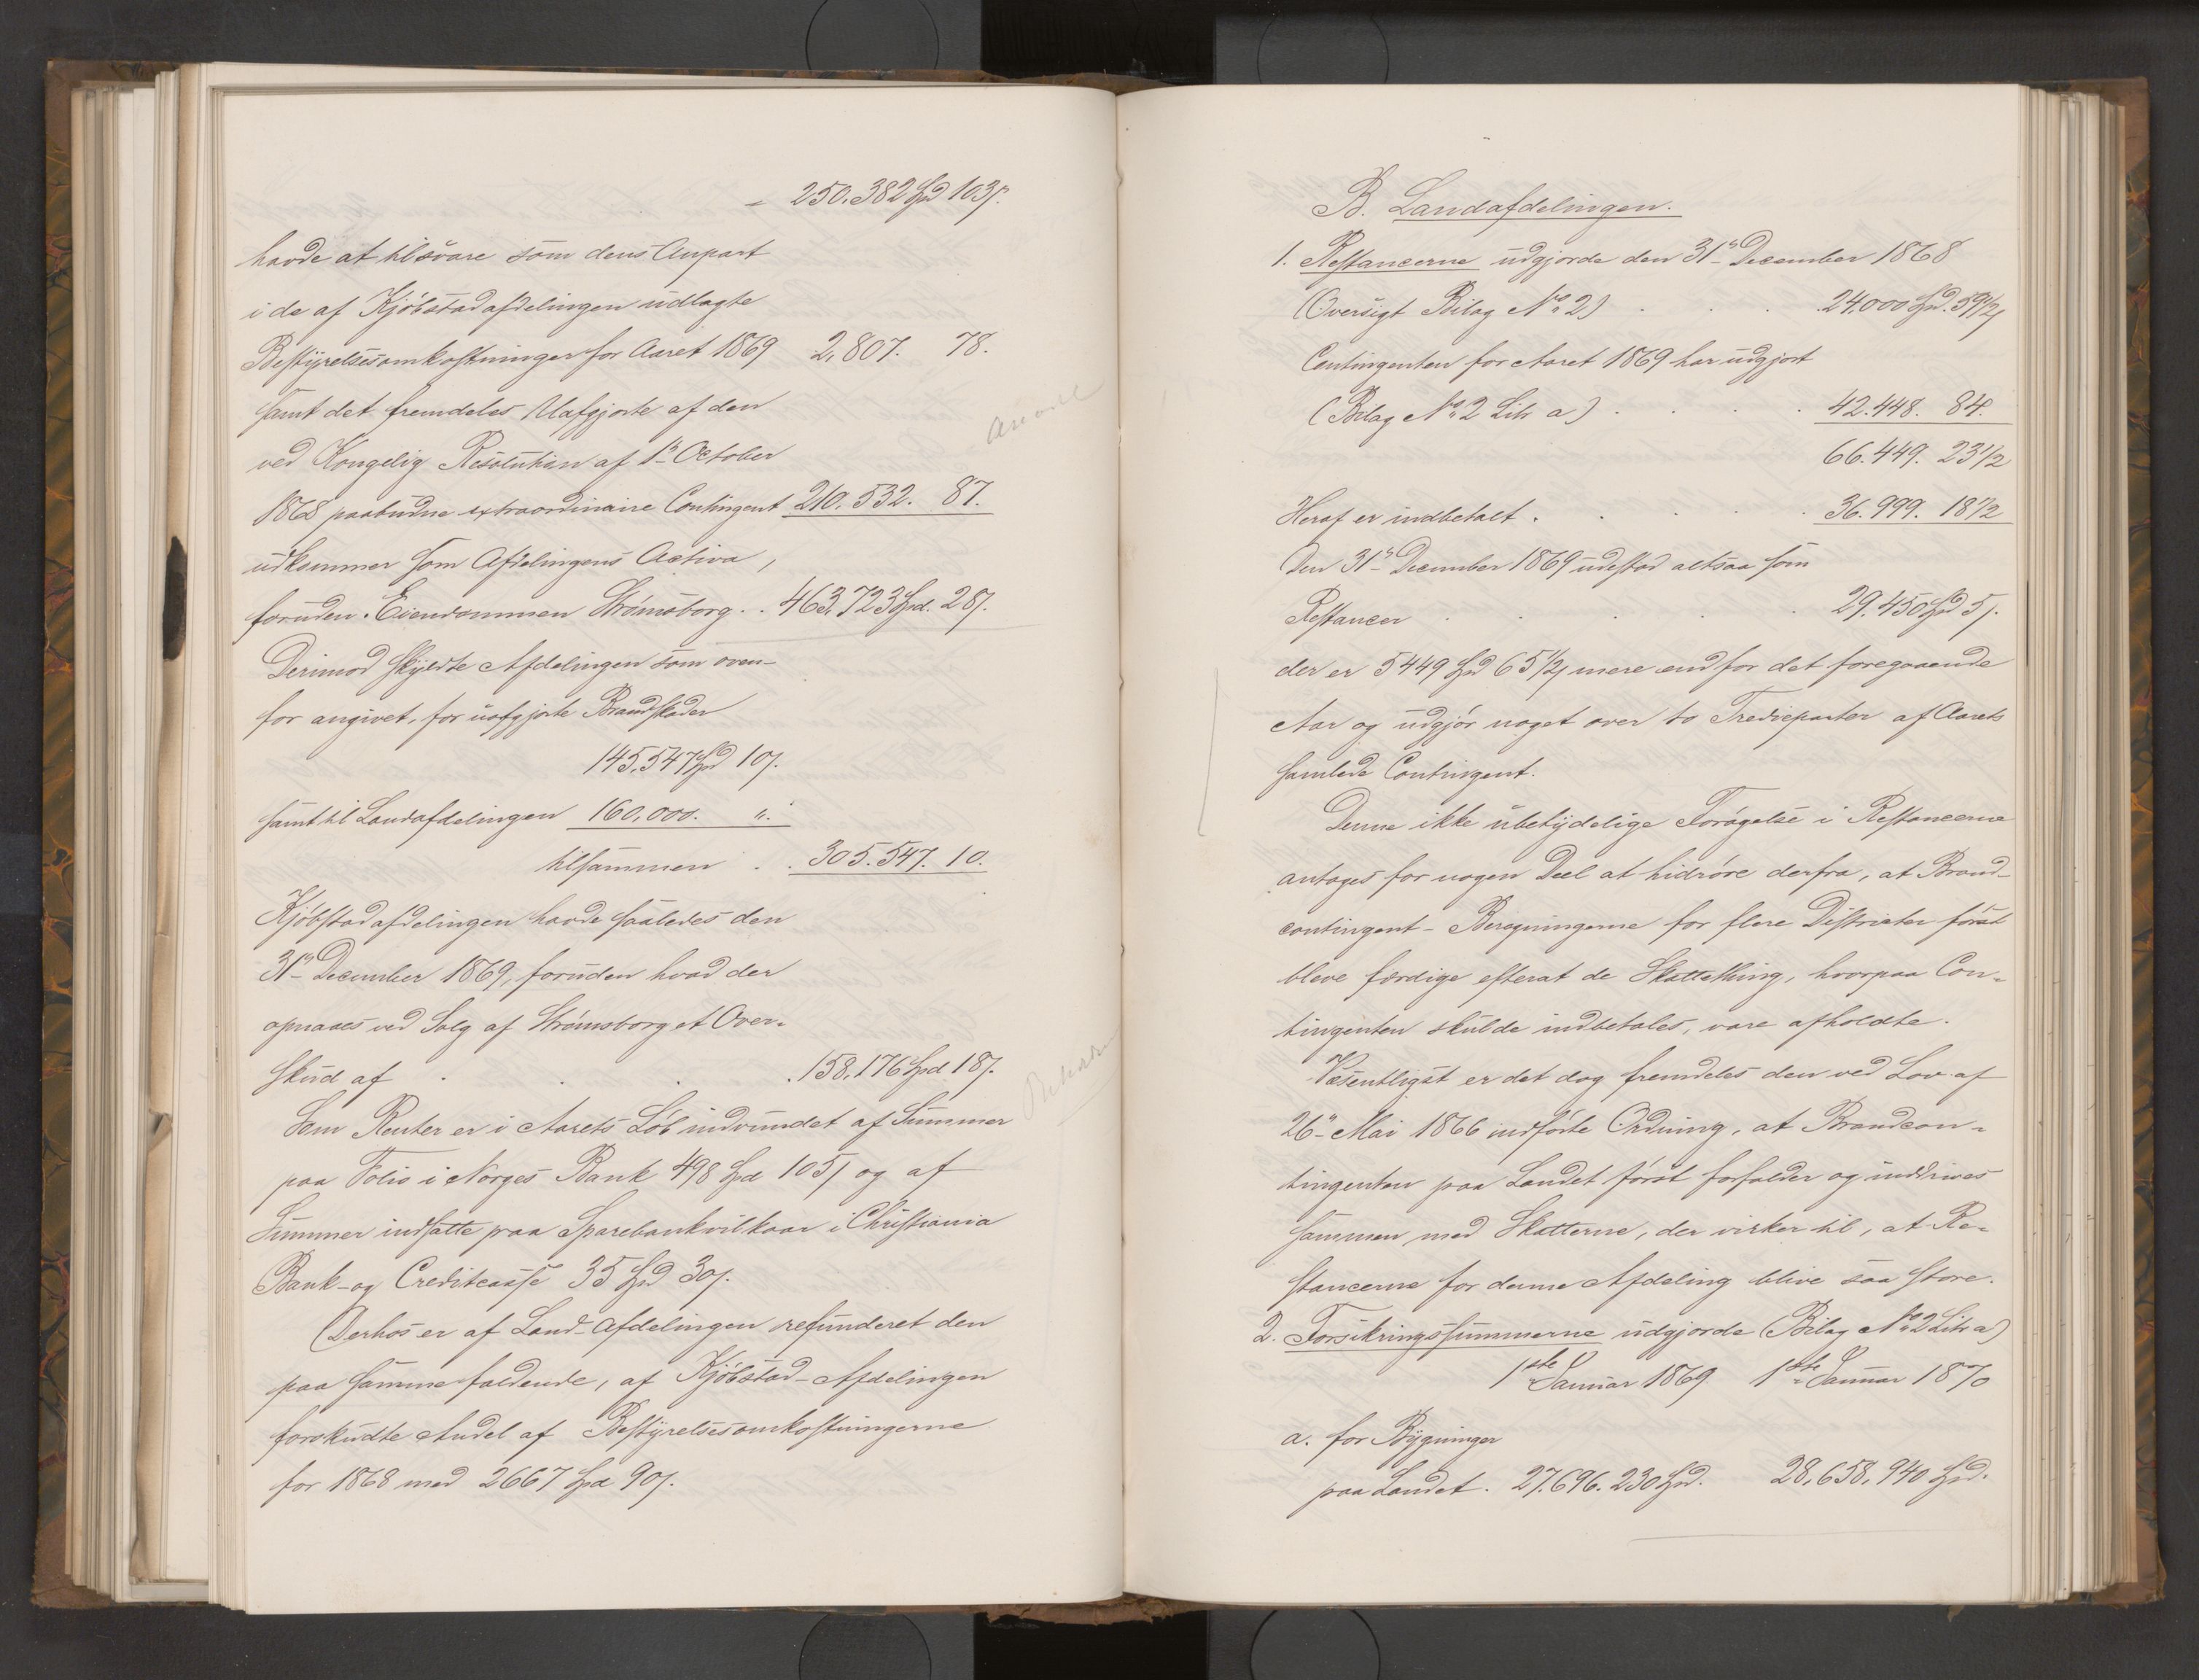 - 250.382 Spd 103 ß.
havde at tilsvare som dens Anpart
i de af Kjöbstadafdelingen udlagte
Bestyrelsesomkostninger for Aaret 1869 2,807. 78.
samt det fremdeles Uafgjorte af den
ved Kongelig Resolution af 1ste October
1868 paabudne extraordinaire Contingent 210.532. 87.
udkommer som Afdelingens Activa,
foruden Eiendommen Strømsborg . . 463.723 Spd. 28 ß.
Derimod skyldte Afdelingen som oven-
for angivet, for uafgjorte Brandskader
145.547 Spd 10 ß.
samt til Landafdelingen 160,000. ".
tilsammen . . 305.547. 10.
Kjöbstadafdelingen havde saaledes den
31te December 1869, foruden hvad der
opnaaes ved Salg af Strømsborg et Over-
skud af . . . . 158,176 Spd 18 ß.
Som Renter er i Aarets Löb indvundet af Summer
paa Folio i Norges Bank 498 Spd 105 ß og af
Summer indsatte paa Sparebankvilkaar i Christiania
Bank- og Creditcasse 35 Spd 30 ß.
Derhos er af Land-Afdelingen refunderet den
paa samme faldende, af Kjöbstad-Afdelingen
forskudte Andel af Bestyrelsesomkostningerne
for 1868 med 2667 Spd 90 ß.
B. Landafdelingen.
1. Restancerne udgjorde den 31te December 1868
(Oversigt Bilag No 2) . . . 24.000 Spd. 59 1/2 ß
Contingenten for Aaret 1869 har udgjort
(Bilag No 2 Litr a) . . . . 42.448. 84.
66.449. 23 1/2
Heraf er indbetalt . . . . . 36.999. 18 1/2
Den 31te December 1869 udestod altsaa som
Restancer . . . . 29.450 Spd 5 ß.
der er 5449 Spd 65 1/2 ß mere end for det foregaaende
Aar og udgjør noget over to Trediеparter af Aarets
samlede Contingent.
Denne ikke ubetydelige Forøgelse i Restancerne
antages for nogen Deel at hidrøre derfra, at Brand-
contingent-Beregningerne for flere Districter först
bleve færdige efterat de Skattething, hvorpaa Con-
tingenten skulde indbetales, vare afholdte.
Væsentligst er det dog fremdeles den ved Lov af
26de Mai 1866 indförte Ordning, at Brandcon-
tingenten paa Landet först forfalder og inddrives
sammen med Skatterne, der virker til, at Re-
stancerne for denne Afdeling blive saa store.
2. Forsikringssummerne udgjorde (Bilag No 2 Litr a)
1ste Januar 1869 1ste Januar 1870
a. for Bygninger
paa Landet . 27.696.230 Spd. 28,658,940 Spd.